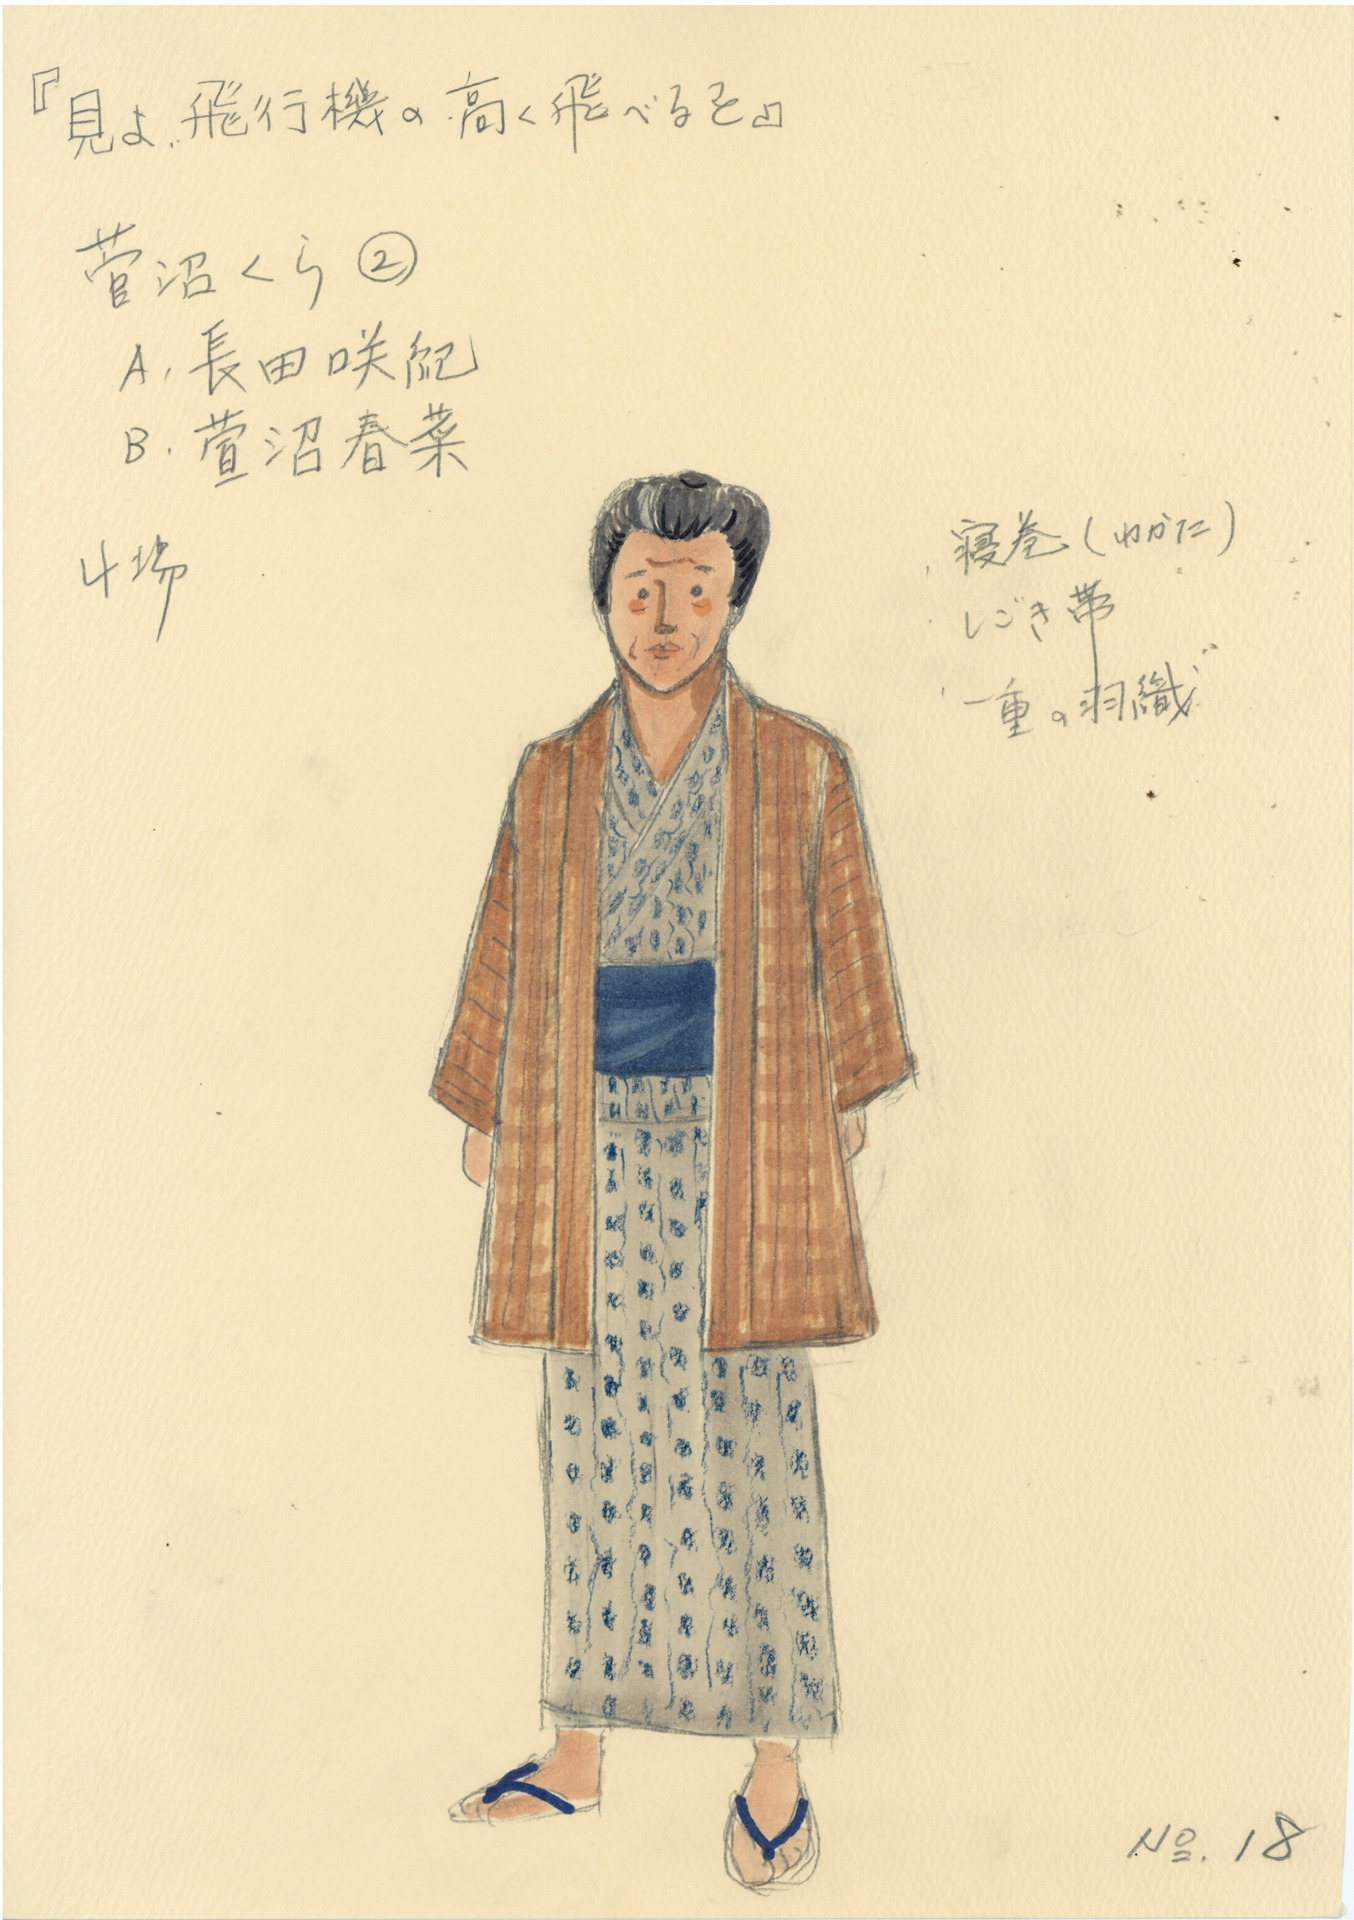 『見よ、飛行機の高く飛べるを』
菅沼くら②
A. 長田咲紀
B. 萱沼春菜
4場
寝巻(ゆかた)
しごき帯
一重の羽織
No. 18